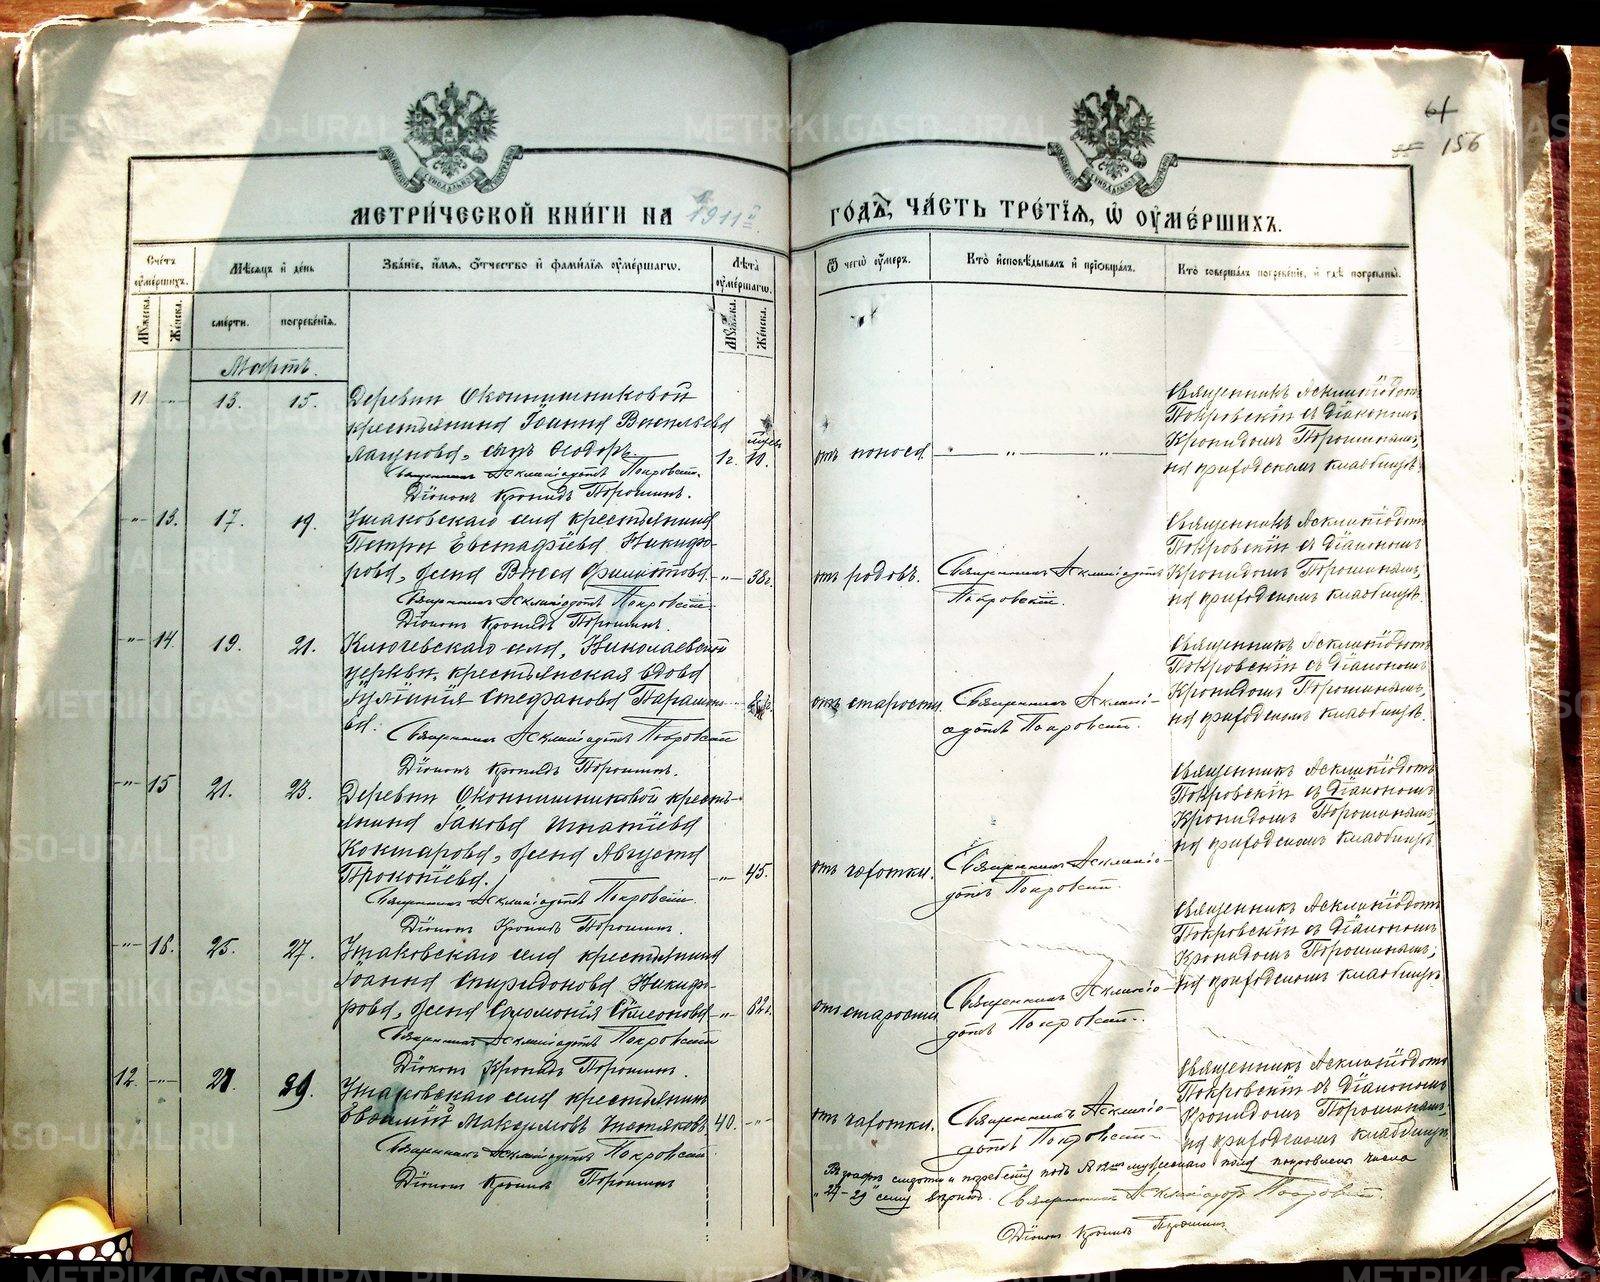 64
156
МЕТРИ́ЧЕСКОЙ КНИ́ГИ НА 1911 г.
ГО́ДЪ, ЧА́СТЬ ТРЕ́ТІѦ, Ѡ ОУМЕ́РШИХЪ.
Сче́тъ оуме́ршихъ.
Мѣ́сѧцъ и де́нь
Зва́нїе, и́мѧ, ѻ́тчество и фамилїѧ оуме́ршагѡ.
Лѣ́та оуме́ршагѡ.
Мꙋ́жеска.
Же́нска.
сме́рти.
погребе́нїѧ.
Мꙋ́жеска.
Же́нска.
Ѿ чегѡ̀ оу́меръ.
Кто̀ и҆сповѣ́дывалъ и҆ прїѡбща́лъ.
Кто̀ соверша́лъ погребе́нїе, и҆ гдѣ̀ погребены̀.
Мартъ.
11 -"- 13. 15. Деревни Оконишниковой
крестьянина Іоанна Васильева
сынъ Ѳеодоръ. 1 г. 10.
Священникъ Асклипіодотъ Покровскій.
Діаконъ Кронидъ Порошинъ.
отъ поноса.
— " — " —
Священникъ Асклипіодотъ
Покровскій съ Діакономъ
Кронидомъ Порошинымъ,
на приходскомъ кладбищѣ.
-"- 13. 17. 19. крестьянина
Петра Евстафіева Никифо-
рова, жена Васса Филиппова. -"- 38 г.
Священникъ Асклипіодотъ Покровскій.
Діаконъ Кронидъ Порошинъ.
отъ родовъ.
Священникъ Асклипіодотъ
Покровскій.
Священникъ Асклипіодотъ
Покровскій съ Діакономъ
Кронидомъ Порошинымъ,
на приходскомъ кладбищѣ.
-"- 14. 19. 21. Ключевскаго села, Николаевской
церкви, крестьянская вдова
Іуліанія Стефанова
Священникъ Асклипіодотъ Покровскій
Діаконъ Кронидъ Порошинъ.
отъ старости.
Священникъ Асклипі-
одотъ Покровскій.
Священникъ Асклипіодотъ
Покровскій съ Діакономъ
Кронидомъ Порошинымъ,
на приходскомъ кладбищѣ.
-"- 15 21. 23. Деревни Оконишниковой кресть-
янина Іакова Игнатіева
жена Августа
Прокопіева. -"- 45.
Священникъ Асклипіодотъ Покровскій.
Діаконъ Кронидъ Порошинъ.
отъ чахотки.
Священникъ Асклипіо-
дотъ Покровскій.
Священникъ Асклипіодотъ
Покровскій съ Діакономъ
Кронидомъ Порошинымъ,
на приходскомъ кладбищѣ.
-"- 16. 25. 27. крестьянина
Іоанна Спиридонова Никифо-
рова, жена Соломонія Симеонова -"- 62 г.
Священникъ Асклипіодотъ Покровскій
Діаконъ Кронидъ Порошинъ.
отъ старости
Священникъ Асклипіо-
дотъ Покровскій.
Священникъ Асклипіодотъ
Покровскій съ Діакономъ
Кронидомъ Порошинымъ,
на приходскомъ кладбищѣ.
12. -"- 27. 29. крестьянинъ
Евѳимій Максимовъ 40. -"-
Священникъ Асклипіодотъ Покровскій.
Діаконъ Кронидъ Порошинъ
отъ чахотки.
Священникъ Асклипіо-
дотъ Покровскій.
Священникъ Асклипіодотъ
Покровскій съ Діакономъ
Кронидомъ Порошинымъ,
на приходскомъ кладбищѣ.
Въ графѣ смерти и погребенія подъ № 12 мужескаго пола числа
"27-29" сему вѣрить. Священникъ Асклипіодотъ Покровскій.
Діаконъ Кронидъ Порошинъ
METRIKI.GASO-URAL.RU